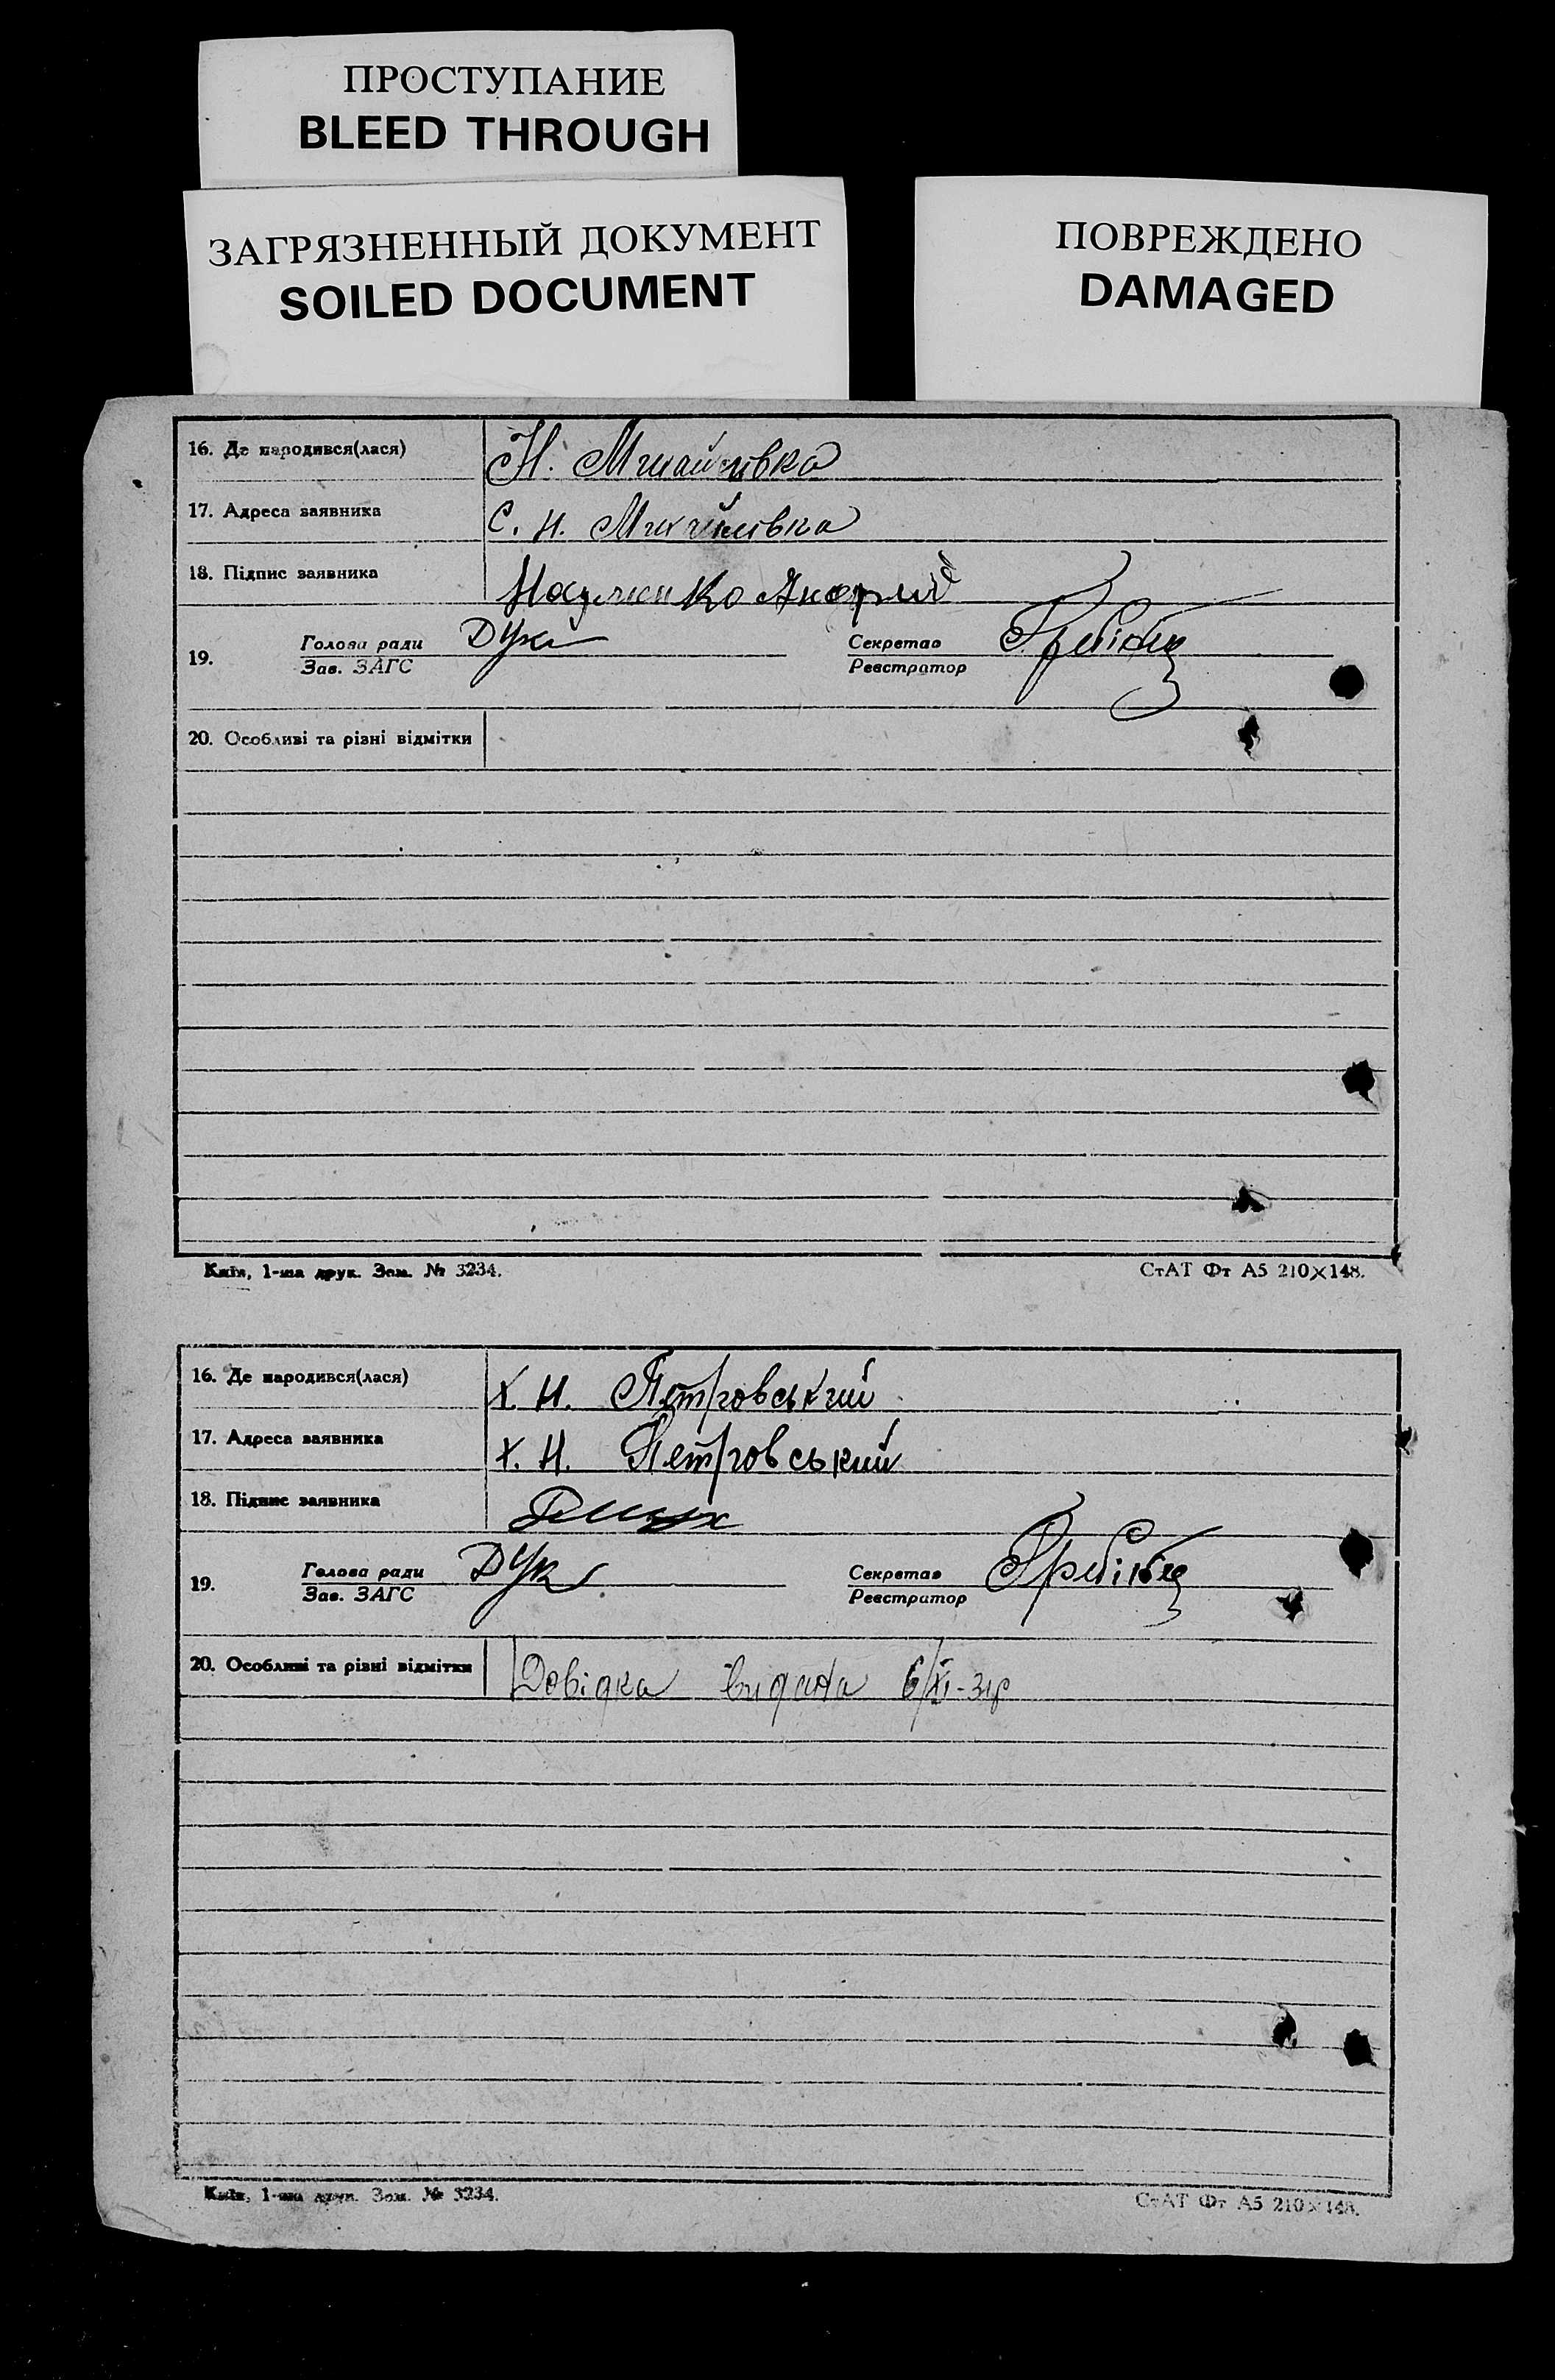 ПРОСТУПАНИЕ
BLEED THROUGH
ЗАГРЯЗНЕННЫЙ ДОКУМЕНТ
SOILED DOCUMENT
ПОВРЕЖДЕНО
DAMAGED
16. Де народився(лася) Н. Михайлівка
17. Адреса заявника с. Н. Михайлівка
18. Підпис заявника
19. Голова ради Дук Секретар
Зав. ЗАГС Реєстратор
20. Особливі та різні відмітки
Київ, 1-ша друк. Зам. № 3234.
СтАТ Фт А5 210×148.
16. Де народився(лася) х. Н. Петровський
17. Адреса заявника х. Н. Петровський
18. Підпис заявника
19. Голова ради Дук Секретар
Зав. ЗАГС Реєстратор
20. Особливі та різні відмітки Довідка видана 6/XI-31р
Київ, 1-ша друк. Зам. № 3234.
СтАТ Фт А5 210×148.